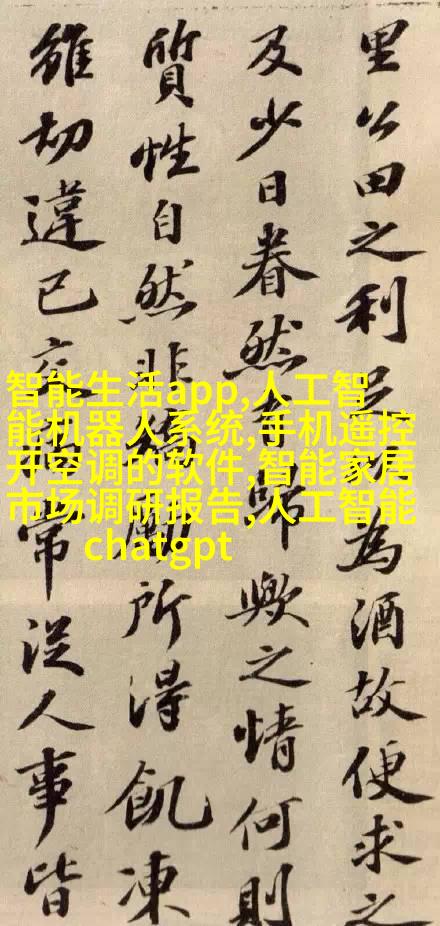 里公田之利足為酒故便求之
及少日眷然有歸歟之情何則
質性自然非矯勵所得飢凍
雖切違已交病常從人事皆
智能生活app,人工智
能机器人系统,手机遥控
开空调的软件,智能家居
市场调研报告,人工智能
chatgpt